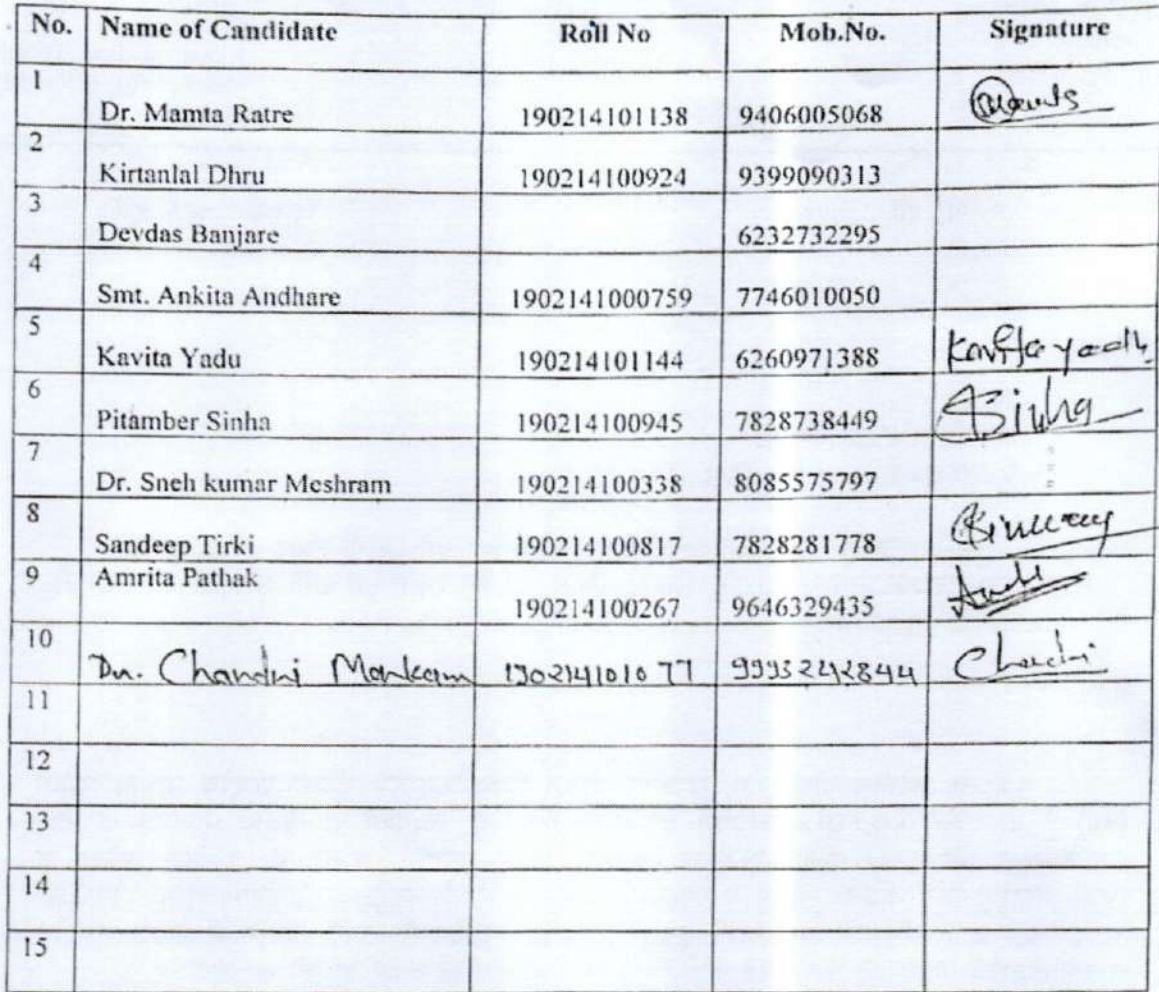 No. Name of Candidate Roll No Mob.No. Signature
1 Dr. Mamta Ratre 190214101138 9406005068
2 Kirtanlal Dhru 190214100924 9399090313
3 Devdas Banjare 6232732295
4 Smt. Ankita Andhare 1902141000759 7746010050
5 Kavita Yadu 190214101144 6260971388 Kavita yadu
6 Pitamber Sinha 190214100945 7828738449 Sinha
7 Dr. Sneh kumar Meshram 190214100338 8085575797
8 Sandeep Tirki 190214100817 7828281778
9 Amrita Pathak 190214100267 9646329435
10 Dr. Chandni Markam 190214101077 9993242844
11
12
13
14
15